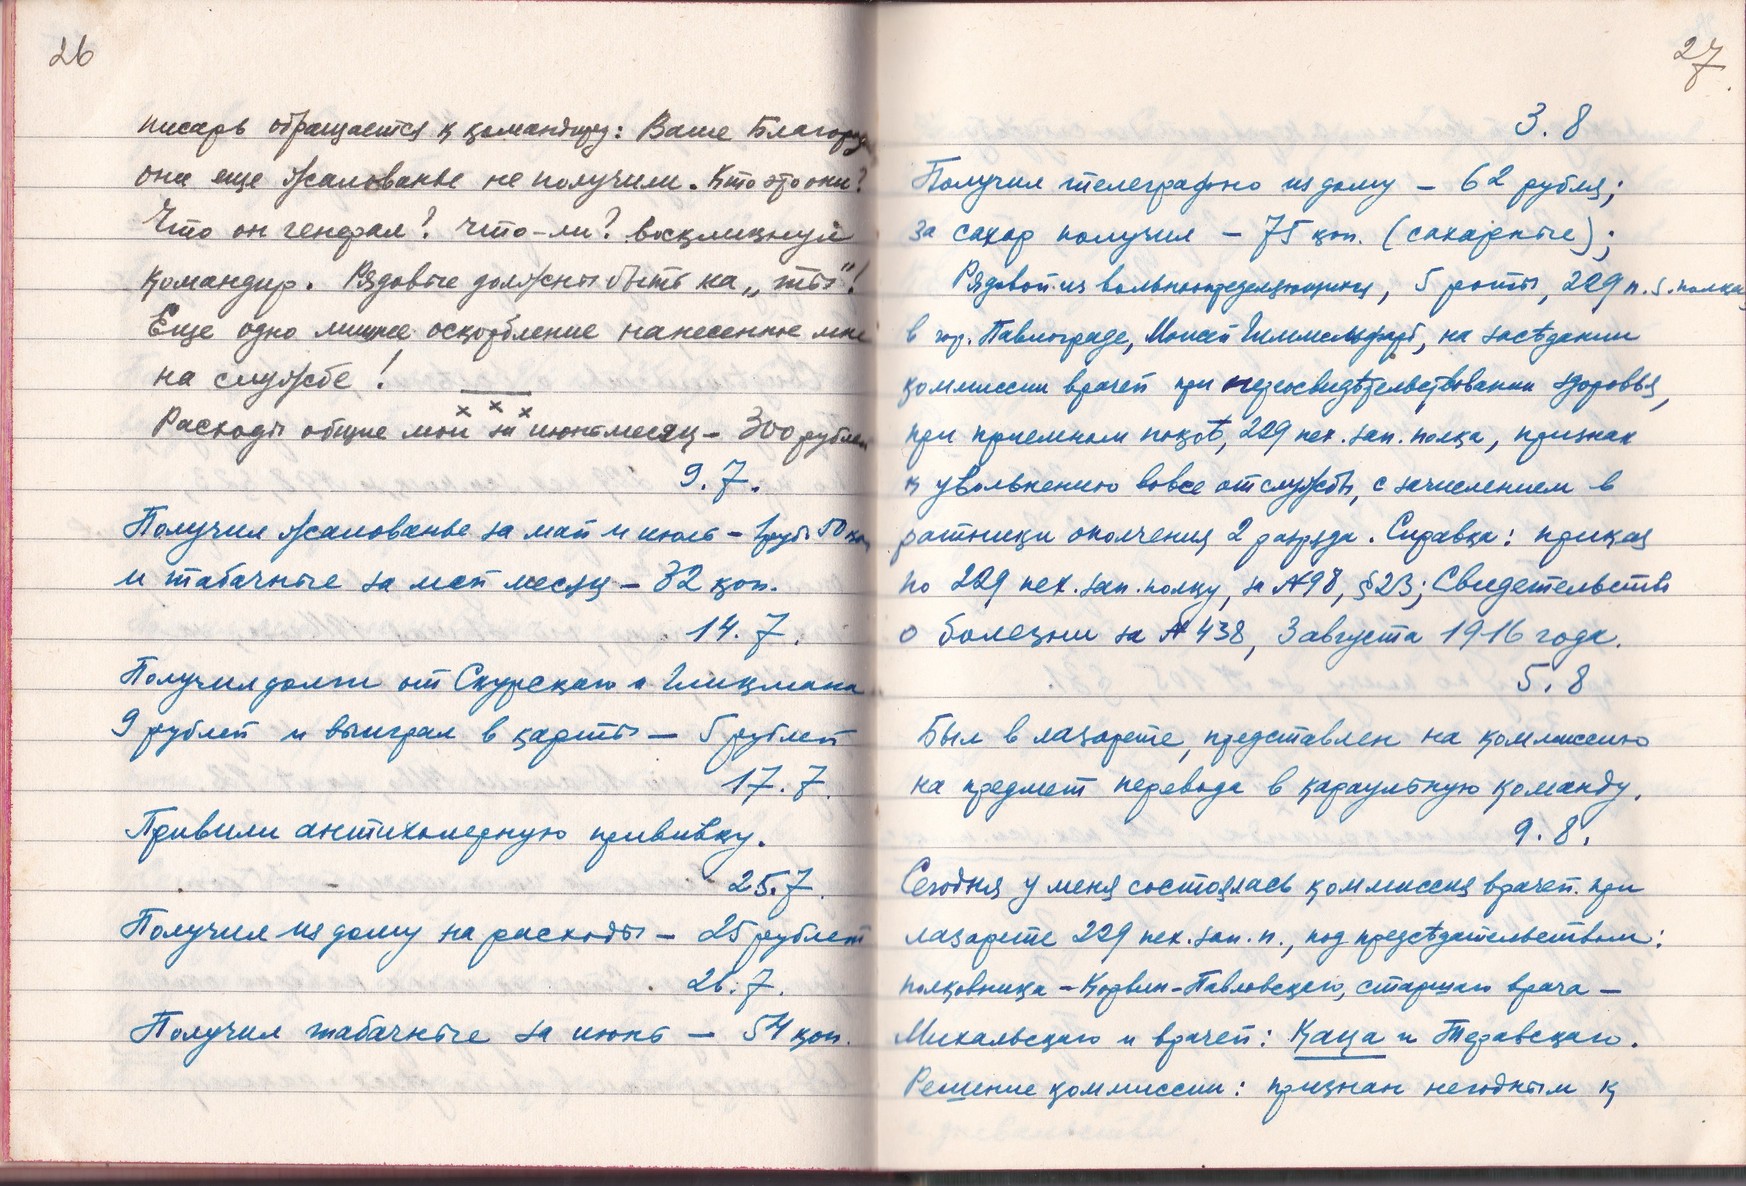 26
писарь обращается к командиру: Ваше Благород
они еще жалованье не получили. Кто это они?
Что он генерал? Что-ли? воскликнул
командир. Рядовые должны быть на „ты"!
Еще одно лишнее оскорбление нанесенное мне
на службе!
x x x
Расходы общие мои за июнь месяц – 300 рублей
9.7.
Получил жалованье за май и июнь – 50 коп
и табачные за май месяц – 32 коп.
14.7.
Получил долги от Скурскаго и Гликмана
9 рублей и выиграл в карты – 5 рублей
17.7.
Привили антихолерную прививку.
25.7.
Получил из дому на расходы – 25 рублей
26.7.
Получил табачные за июнь – 54 коп.
27.
3.8
Получил телеграфно из дому – 62 рубля;
за сахар получил – 75 коп. (сахарные);
Рядовой из вольноопределяющихся, 5 роты, 229 п. полка,
в гор. Павлограде, Моисей Гиммельфарб, на засѣдании
коммиссии врачей при переосвидѣтельствовании здоровья,
при приемном покоѣ, 229 пех. зап. полка, признан
к увольнению вовсе от службы, с зачислением в
ратники ополчения 2 разряда. Справка: приказ
по 229 пех. зап. полку, за №98, §23; Свидетельство
о болезни за №438, 3 августа 1916 года.
5.8
Был в лазарете, представлен на коммиссию
на предмет перевода в караульную команду.
9.8.
Сегодня у меня состоялась коммиссия врачей при
лазарете 229 пех. зап. п., под предсѣдательством:
полковника – Корвин-Павловскаго, старшаго врача –
Михальскаго и врачей: Каца и Теравскаго.
Решение коммиссии: признан негодным к